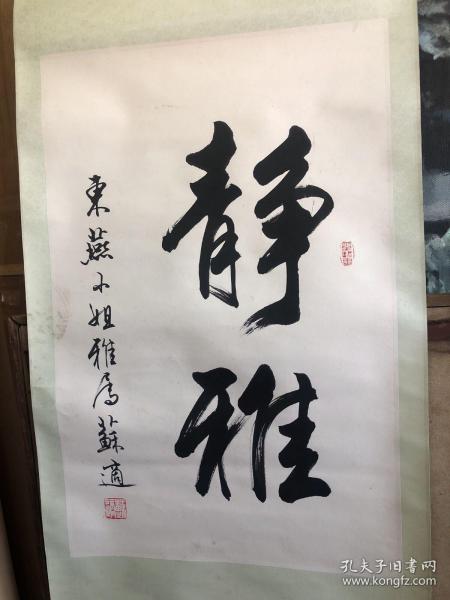 静
雅
東燕小姐雅属蘇適
孔夫子旧书网
www.kongfz.com